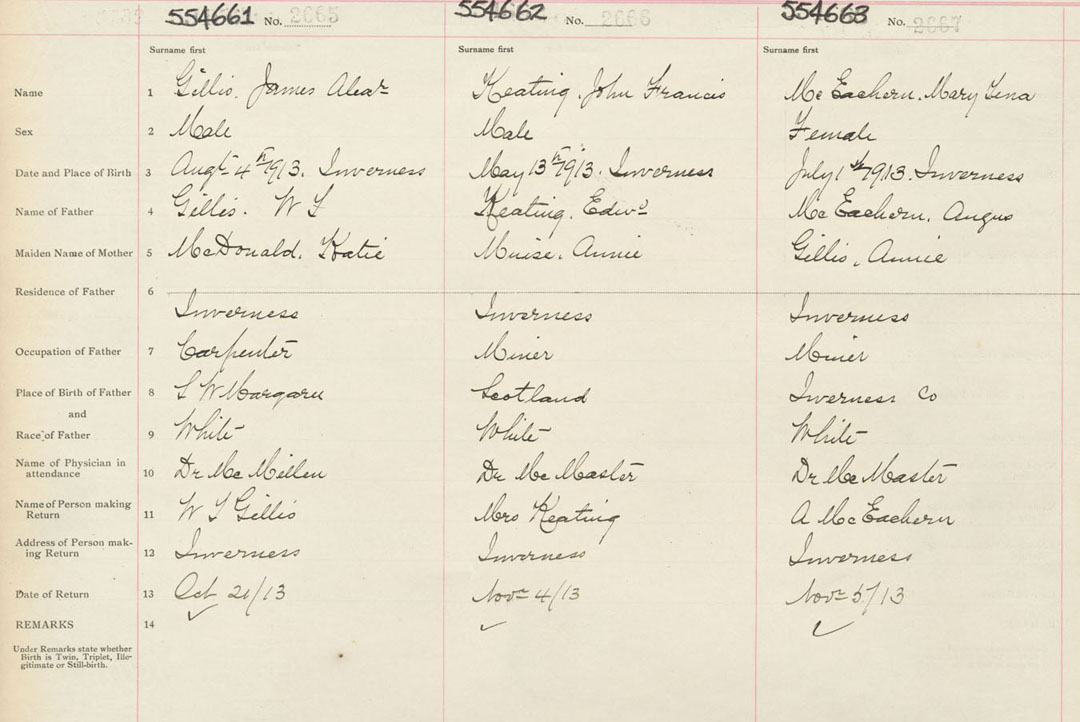 554661 No. 2665 554662 No. 2666 554663 No. 2667
Surname first Surname first Surname first
Name 1 Gillis. James Alexr Keating. John Francis McEachern. Mary Tena
Sex 2 Male Male Female
Date and Place of Birth 3 Augt 4th 1913. Inverness May 13th 1913. Inverness July 1st 1913. Inverness
Name of Father 4 Gillis. W Keating. Edwd McEachern. Angus
Maiden Name of Mother 5 McDonald. Katie Muise. Annie Gillis, Annie
Residence of Father 6
Inverness Inverness Inverness
Occupation of Father 7 Carpenter Miner Miner
Place of Birth of Father 8 S W Margaree Scotland Inverness Co
and
Race of Father 9 White White White
Name of Physician in
attendance 10 Dr McMillen Dr McMaster Dr McMaster
Name of Person making
Return 11 W Gillis Mrs Keating A McEachern
Address of Person mak-
ing Return 12 Inverness Inverness Inverness
Date of Return 13 Oct 21/13 Novr 4/13 Novr 5/13
REMARKS 14
Under Remarks state whether
Birth is Twin, Triplet, Ille-
gitimate or Still-birth.